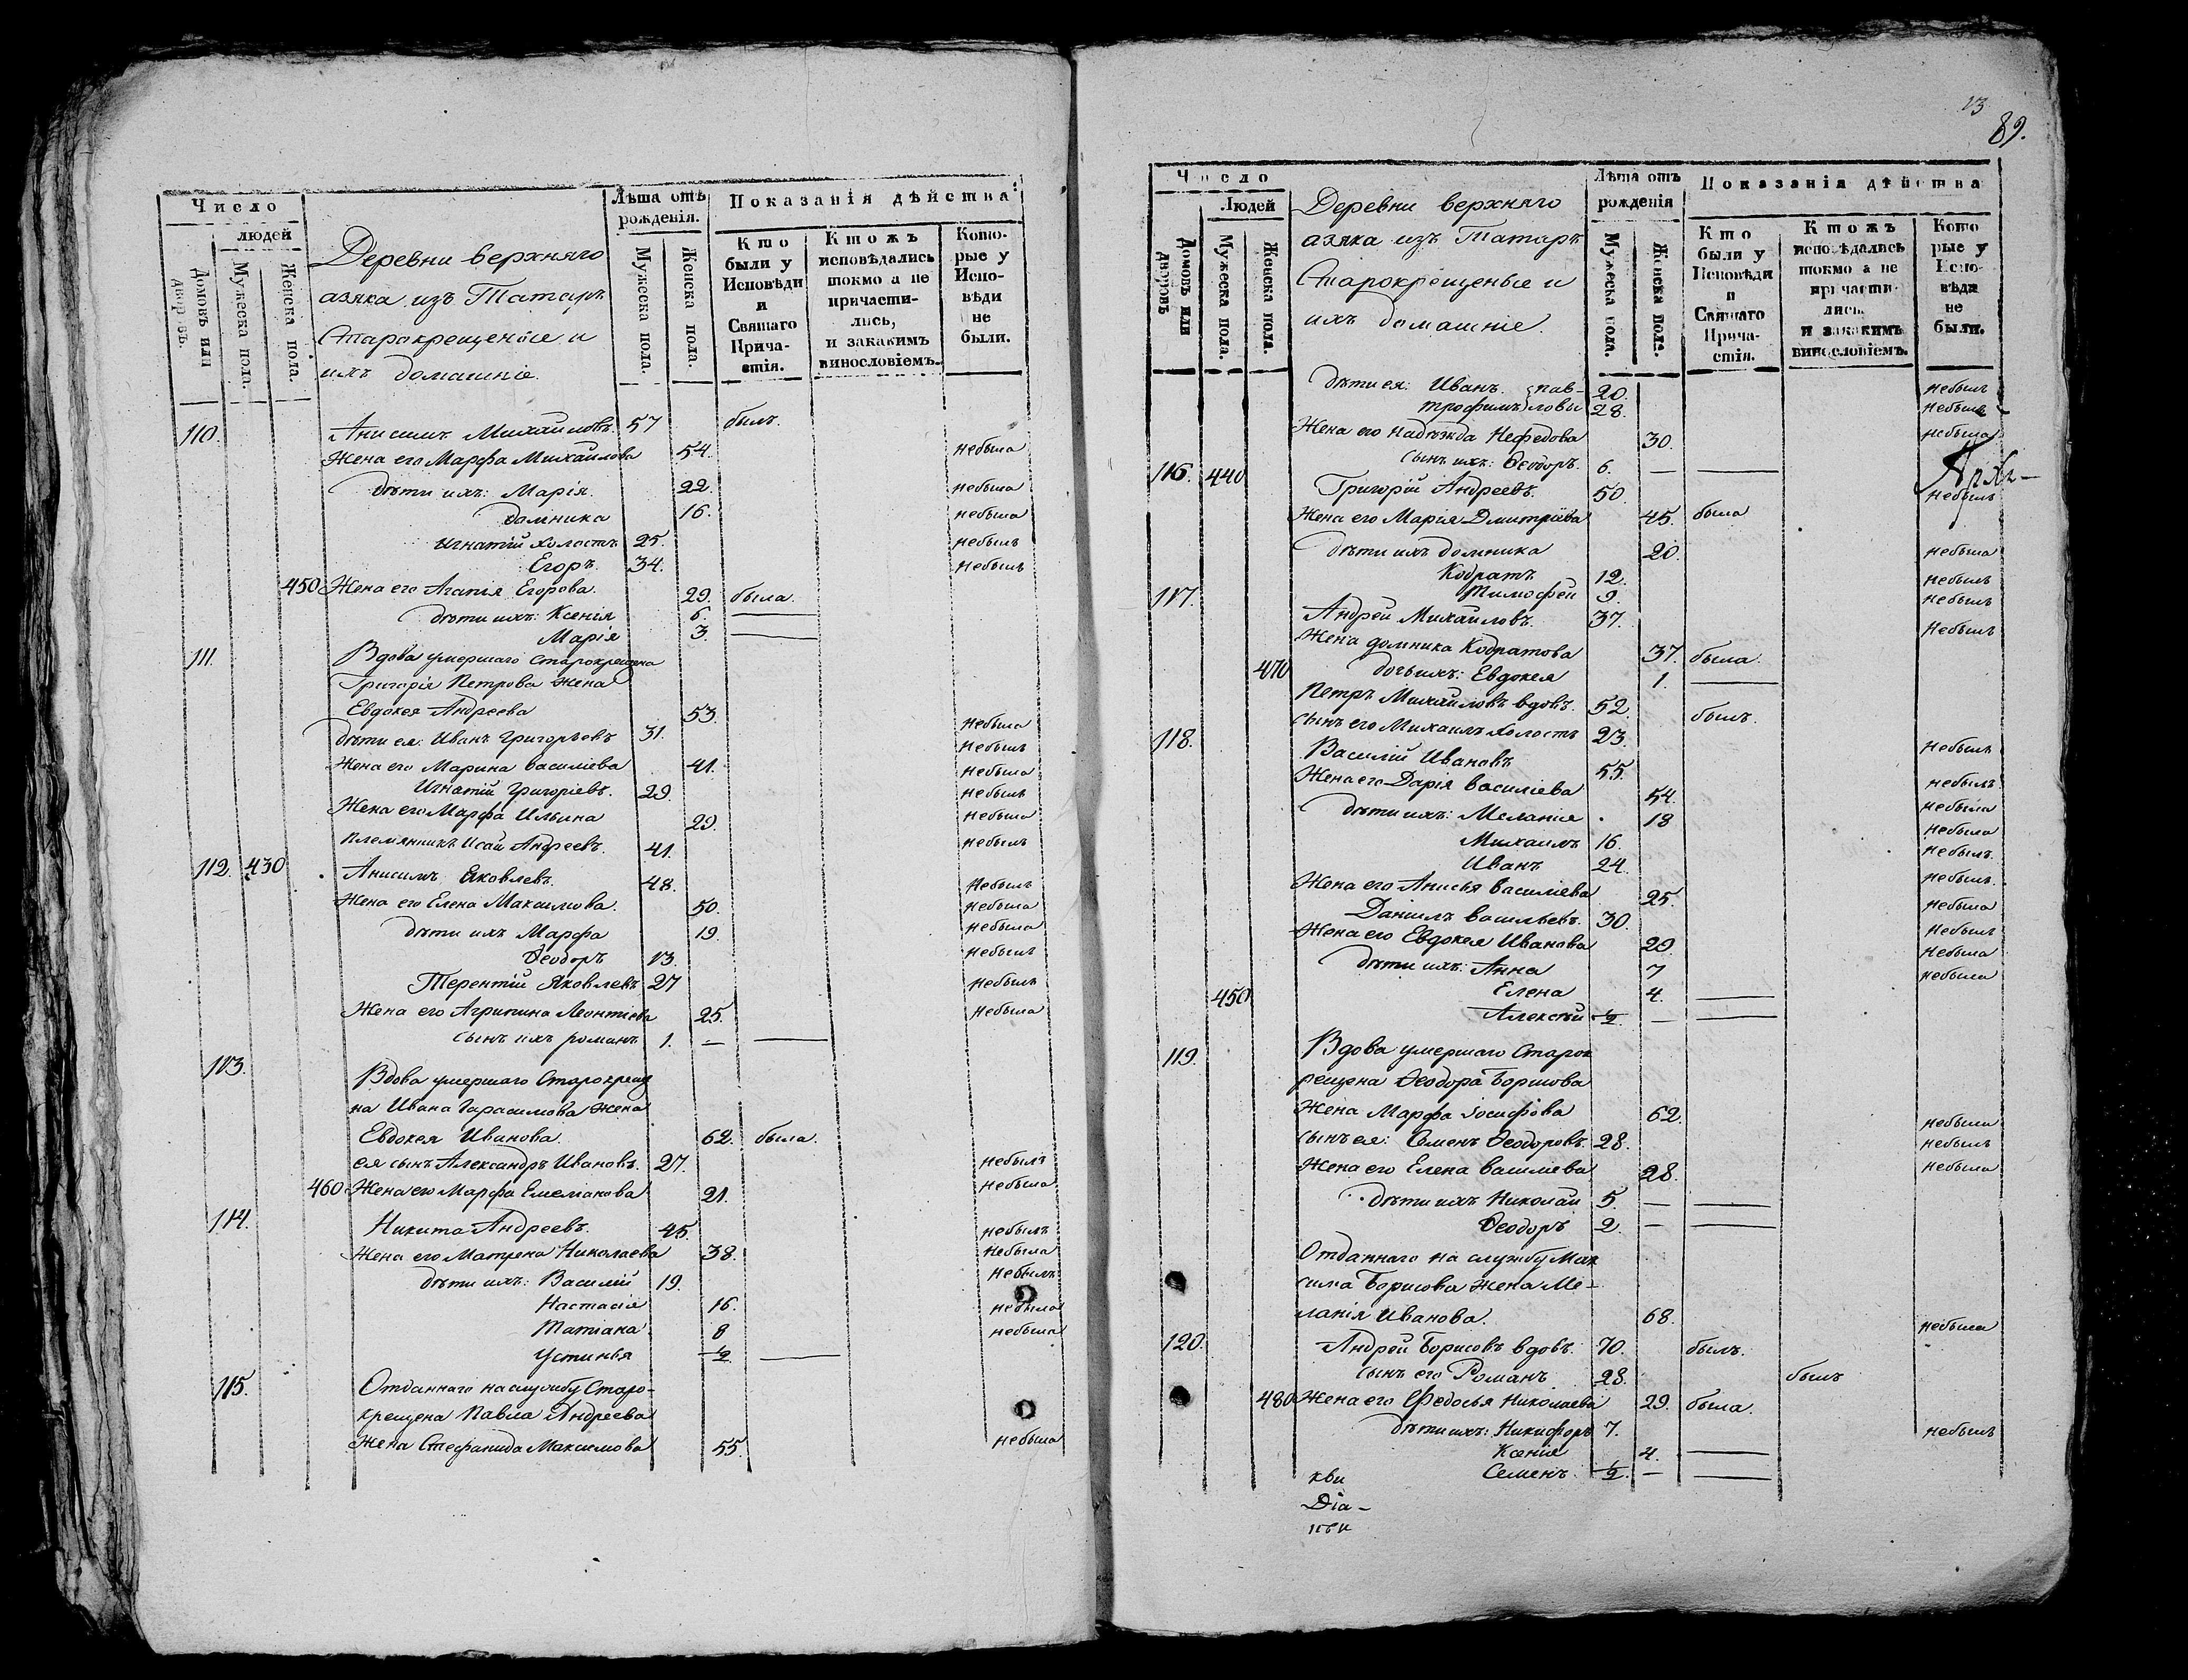 Число
людей
Домовъ или
дворовъ
Мужеска пола.
Женска пола.
Деревни верхняго
азяка изъ Татаръ
Старокрещеные и
ихъ домашніе.
Лѣта отъ
рожденія.
Мужеска пола.
Женска пола.
Показанія дѣйства
Кто
были у
Исповѣди
и
Святаго
Прича-
стія.
Ктожъ
исповѣдались
токмо а не
причасти-
лись,
и закакимъ
винословіемъ.
Кото-
рые у
Испо-
вѣди
не
были.
110. Анисимъ Михайловъ. 57 былъ.
Жена его Марфа Михайлова 54. небыла
дѣти ихъ: Марія. 22. небыла
домника 16. небыла
игнатій холостъ 25. небылъ
Егоръ. 34. небылъ
450 Жена его Агапія Егорова. 29. была.
дѣти ихъ: Ксенія 6.
Марія 3.
111. Вдова умершаго Старокрещена
Григорія Петрова жена
Евдокея Андреева 53. небыла
дѣти ея: Иванъ Григорьевъ 31. небылъ
Жена его Марина василіева 41. небыла
Игнатій Григоріевъ. 29. небылъ
Жена его Марфа Ильина 29. небыла
племянникъ Исай Андреевъ. 41. небылъ
112. 430 Анисимъ Яковлевъ. 48. небылъ
Жена его Елена Макаимова. 50. небыла
дѣти ихъ Марфа 19. небыла
Ѳеодоръ 13. небылъ
Терентій Яковлевъ 27 небылъ
Жена его Агрипина Леонтіева 25. небыла
сынъ ихъ романъ 1. —
113. Вдова умершаго Старокреще
на Ивана Гарасимова жена
Евдокея Иванова. 62. была.
ея сынъ Александръ Ивановъ. 27. небылъ
460 Жена его Марфа Емелианова 21. небыла
114. Никита Андреевъ. 45. небылъ
Жена его Матрена Николаева 38. небыла
дѣти ихъ: Василій 19. небылъ
Настасія 16. небыла
Татіана 8 небыла
Устинья ½
115. Отданнаго на службу Старо-
крещена Павла Андреева
Жена Стефанида Максимова 55. небыла
13
89.
Число
Людей
Домовъ или
дворовъ
Мужеска пола.
Женска пола.
Деревни верхняго
азяка изъ Татаръ
Старокрещеные и
ихъ домашніе.
Лѣта отъ
рожденія
Мужеска пола.
Женска пола.
Показанія дѣйства
Кто
были у
Исповѣди
и
Святаго
Прича-
стія.
Ктожъ
исповѣдались
токмо а не
причасти-
лись.
и закакимъ
винословіемъ.
Кото
рые у
Испо-
вѣди
не
были.
дѣти ея: Иванъ. пав- 20. небылъ
трофимъ ловы 28. небылъ
Жена его надѣжда Нефедова 30. небыла
сынъ ихъ: Ѳеодоръ. 6. —
116. 440 Григорій Андреевъ. 50. небылъ
Жена его Марія Дмитріева 45. была
дѣти ихъ домника 20. небыла
Кодратъ 12. небылъ
Тимофей 9. небылъ
117. Андрей Михайловъ. 37. небылъ
Жена домника Кодратова 37. была.
470 дочь ихъ: Евдокея 1.
Петръ Михайловъ вдовъ. 52. былъ.
сынъ его Михаилъ холостъ 23. небылъ
118. Василій Ивановъ 55. небылъ
Жена его Дарія василіева 54. небыла
дѣти ихъ: Меланія 18 небыла
Михаилъ 16. небылъ.
Иванъ 24. небылъ.
Жена его Анисья василіева 25. небыла
Даніилъ васильевъ. 30. небылъ
Жена его Евдокея Иванова 29. небыла
дѣти ихъ: Анна 7 небыла
450 Елена 4.
Алексѣй ½. —
119. Вдова умершаго Старок
рещена Ѳеодора Борисова
Жена Марфа іосифова 62. небыла
сынъ ея: Семенъ Ѳеодоровъ. 28. небылъ
Жена его Елена василиева 28. небыла
дѣти ихъ Николай 5. —
Ѳеодоръ 2. —
Отданнаго на службу Мак
сима Борисова жена Ме-
ланія Иванова. 68. небыла
120. Андрей Борисовъ вдовъ. 70. былъ.
сынъ его Романъ 28. былъ
480 Жена его Ѳедосья Николаева 29. была.
дѣти ихъ: Никифоръ 7. небылъ
Ксенія 4.
Семенъ. ½. —
кви
Діа-